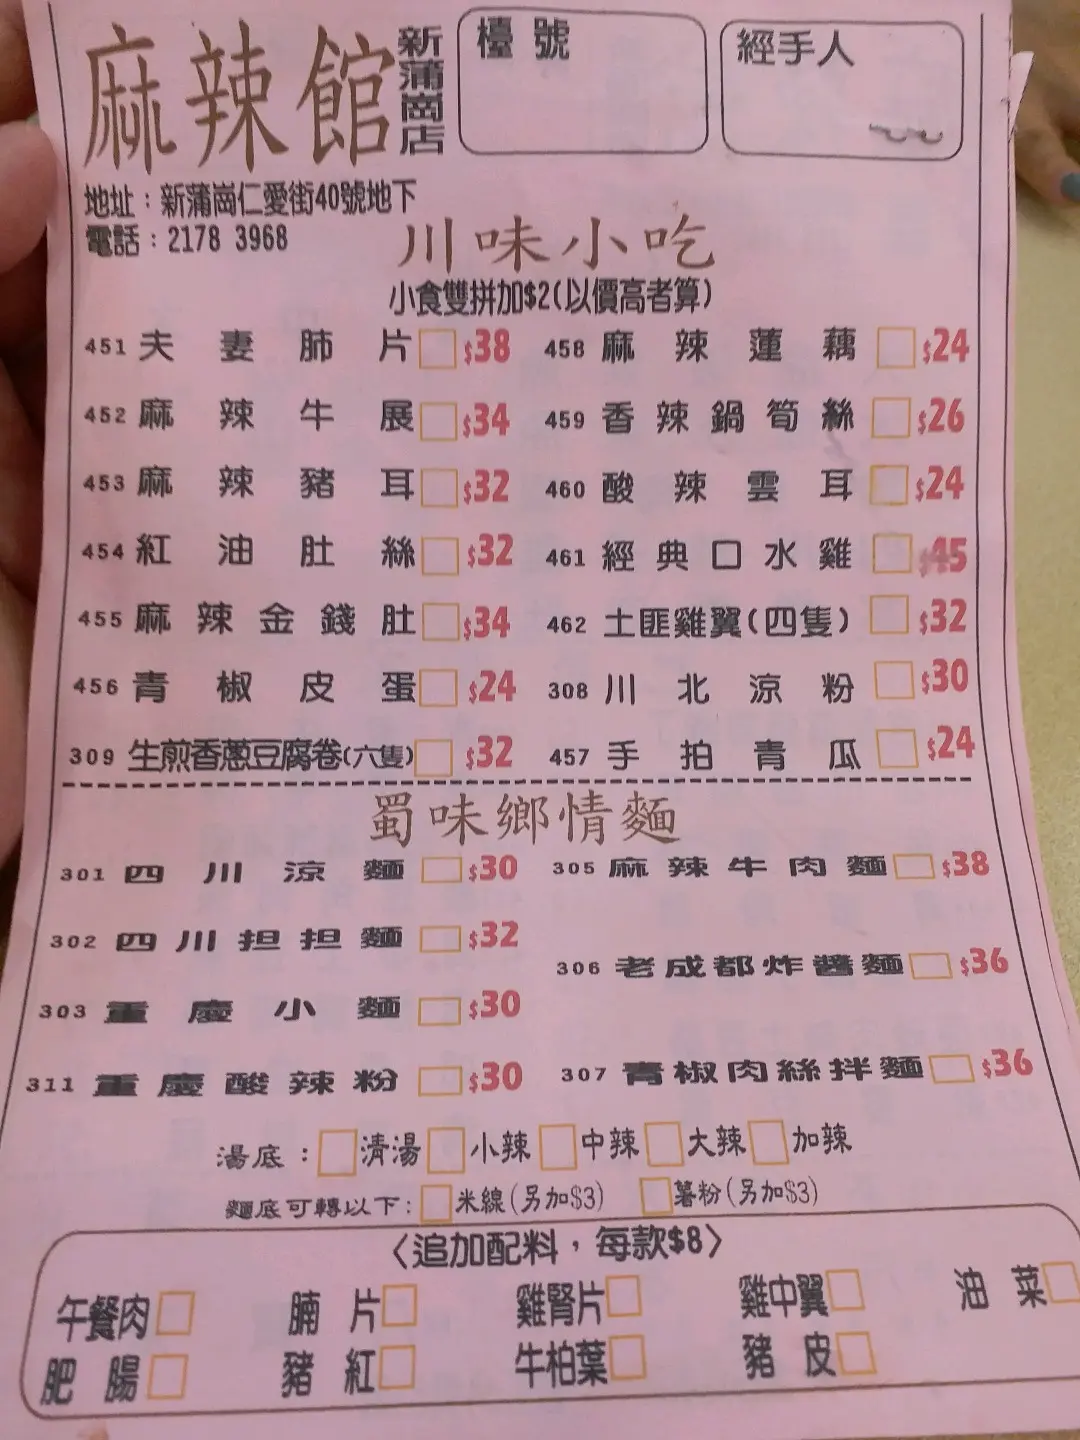 麻辣館 新蒲崗店
檯號
經手人
地址：新蒲崗仁愛街40號地下
電話：2178 3968
川味小吃
小食雙拼加$2(以價高者算)
451 夫妻肺片 $38 458 麻辣蓮藕 $24
452 麻辣牛展 $34 459 香辣鍋筍絲 $26
453 麻辣豬耳 $32 460 酸辣雲耳 $24
454 紅油肚絲 $32 461 經典口水雞 $45
455 麻辣金錢肚 $34 462 土匪雞翼(四隻) $32
456 青椒皮蛋 $24 308 川北涼粉 $30
309 生煎香蔥豆腐卷(六隻) $32 457 手拍青瓜 $24
蜀味鄉情麵
301 四川涼麵 $30 305 麻辣牛肉麵 $38
302 四川担担麵 $32
306 老成都炸醬麵 $36
303 重慶小麵 $30
311 重慶酸辣粉 $30 307 青椒肉絲拌麵 $36
湯底：清湯 小辣 中辣 大辣 加辣
麵底可轉以下：米線(另加$3) 薯粉(另加$3)
〈追加配料，每款$8〉
午餐肉 腩片 雞腎片 雞中翼 油菜
肥腸 豬紅 牛柏葉 豬皮